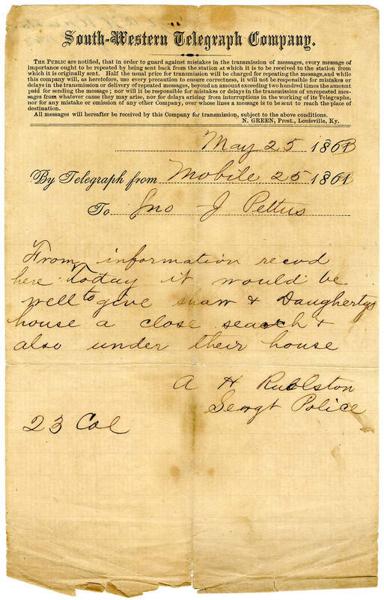 South-Western Telegraph Company.
THE PUBLIC are notified, that in order to guard against mistakes in the transmission of messages, every message of
importance ought to be repeated by being sent back from the station at which it is to be received to the station from
which it is originally sent. Half the usual price for transmission will be charged for repeating the message, and while
this company will, as heretofore, use every precaution to ensure correctness, it will not be responsible for mistakes or
delays in the transmission or delivery of repeated messages, beyond an amount exceeding two hundred times the amount
paid for sending the message; nor will it be responsible for mistakes or delays in the transmission of unrepeated messages
from whatever cause they may arise, nor for delays arising from interruptions in the working of its Telegraphs,
nor for any mistake or omission of any other Company, over whose lines a message is to be sent to reach the place of
destination.
All messages will hereafter be received by this Company for transmission, subject to the above conditions.
N. GREEN, Prest., Louisville, Ky.
May 25 1863
By Telegraph from Mobile 25 186
To Jno J Pettus
From information recvd
here Today it would be
well to give Shaw & Daughertys
house a close search &
also under their house
A H
Sergt Police
23 Col